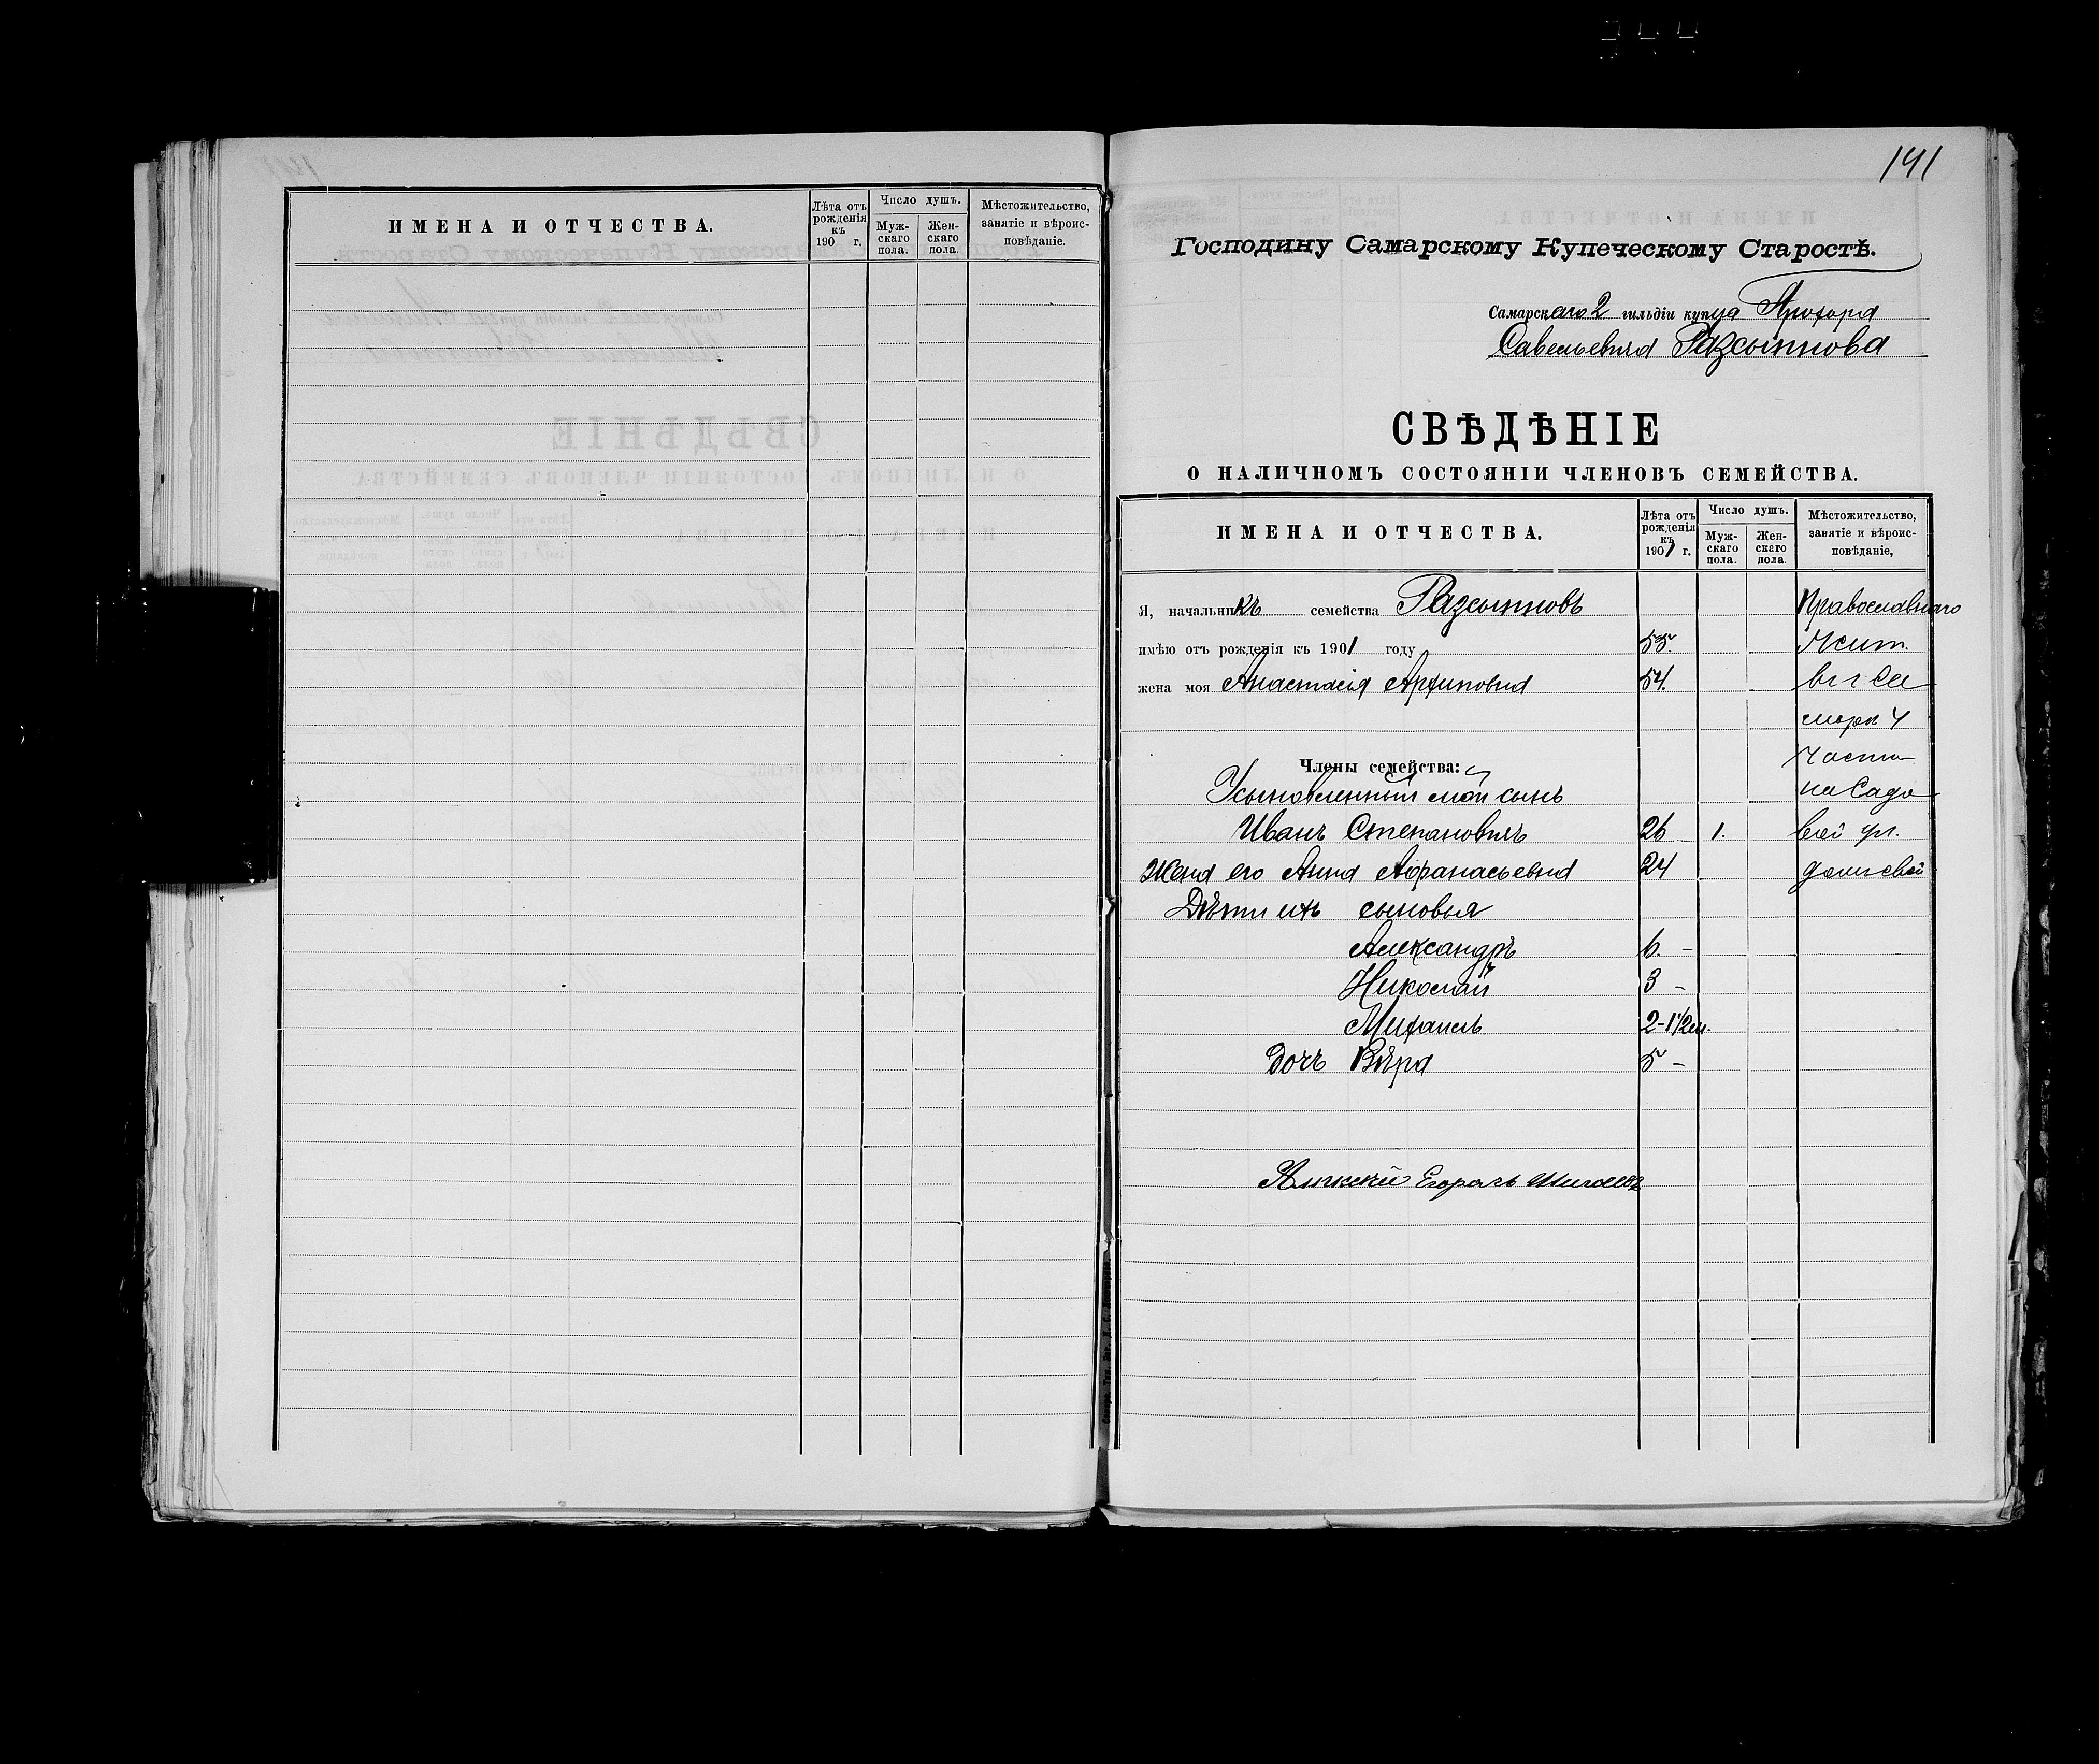 ИМЕНА И ОТЧЕСТВА.
Лѣта отъ рожденія къ 190 г.
Число душъ.
Муж-скаго пола.
Жен-скаго пола.
Мѣстожительство, занятіе и вѣроис-повѣданіе.
141
Господину Самарскому Купеческому Старостѣ.
Самарскаго 2 гильдіи купца Прохора
Савельевича Разсыпнова
СВѢДѢНІЕ
О НАЛИЧНОМЪ СОСТОЯНІИ ЧЛЕНОВЪ СЕМЕЙСТВА.
ИМЕНА И ОТЧЕСТВА.
Лѣта отъ рожденія къ 1901 г.
Число душъ.
Муж-скаго пола.
Жен-скаго пола.
Мѣстожительство, занятіе и вѣроис-повѣданіе,
Я, начальникъ семейства Разсыпновъ Православнаго
имѣю отъ рожденія къ 1901 году 55. Жит.
жена моя Анастасія Архиповна 54. въ г Са
марѣ 4
Члены семейства: части
Усыновленный мой сынъ на Садо
Иванъ Степановичъ 26 1. вой ул.
Жена его Анна Афанасьевна 24 домъ свой
Дѣти ихъ сыновья
Александръ 6. -
Николай 3 -
Михаилъ 2-1 1/2 м.
Дочь Вѣра 5 -